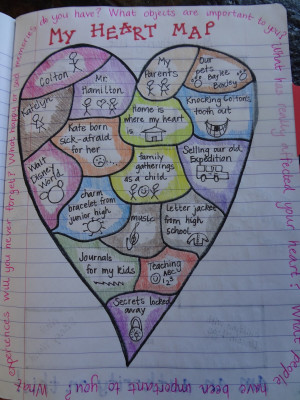 memories do you have? What objects are important to you?
MY HEART MAP
Colton
Mr.
Hamilton
My
Parents
Our
pets
Baylee
Katelyn
Home is
where my heart
is
Knocking Colton's
tooth out
Kate born
sick-afraid
for her
Selling our old
Expedition
Walt
Disney
World
family
gatherings
as a child
charm
bracelet from
junior high
music
letter jacket
from high
school
Journals
for my kids
Teaching
ABC
123
Secrets locked
away
What has affected your heart?
What people
have been important to you?
What
experiences will you never forget?